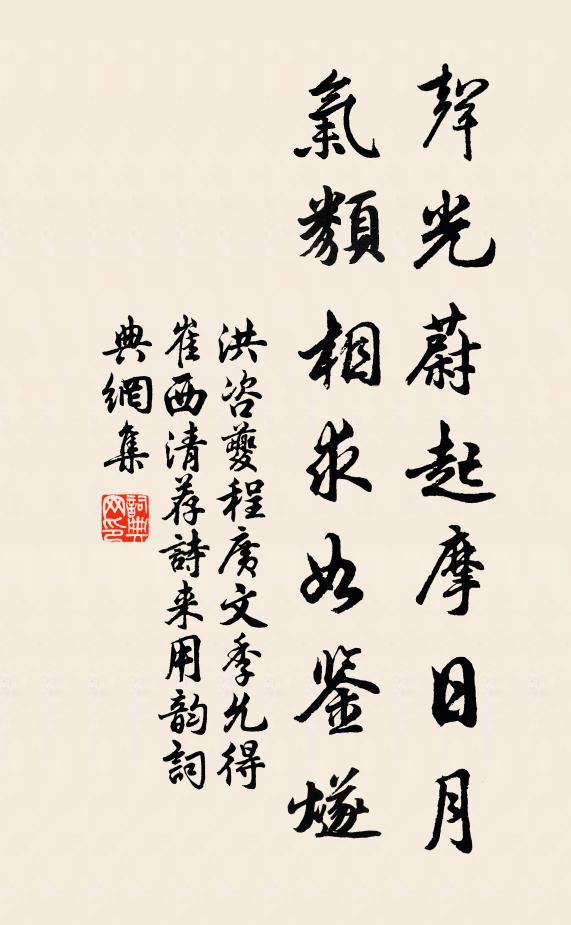 聲光蔚起摩日月
氣類相求如鑒燧
洪咨夔程廣文季允得
崔西清荐詩来用韵詞
典網集
詞典網印